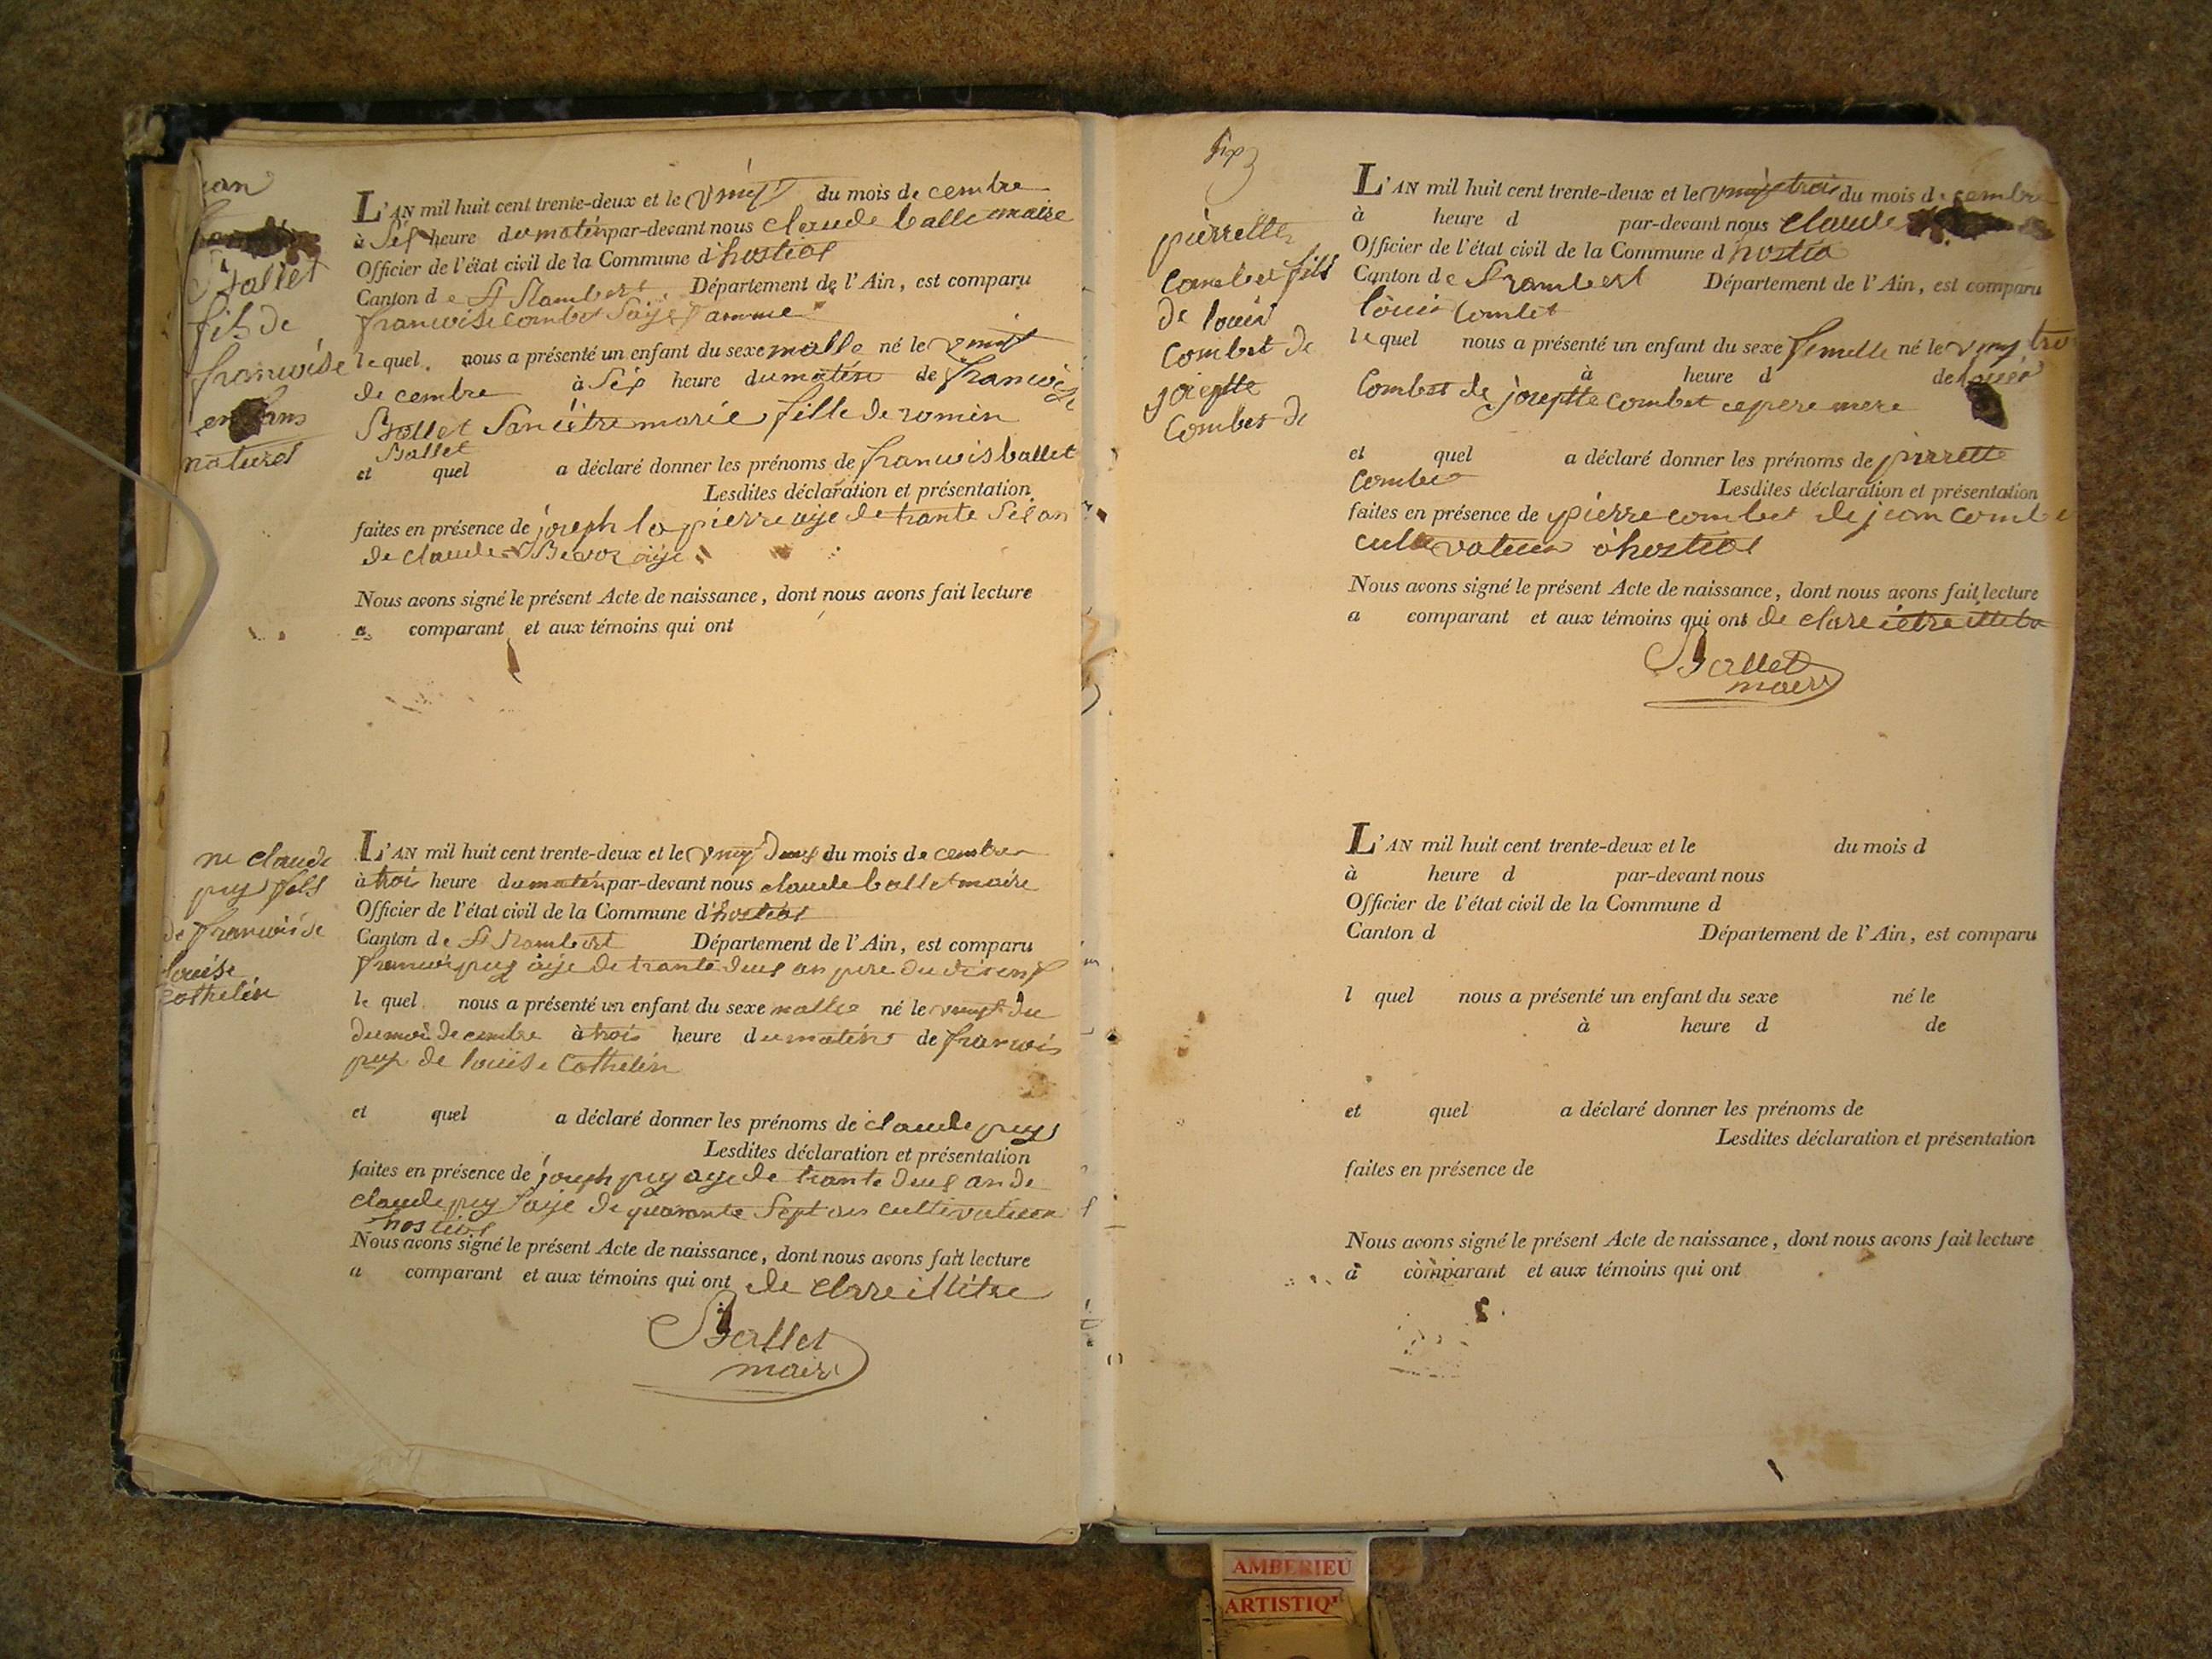 Ballet
fils de
francoise
enfans
naturel
L'AN mil huit cent trente-deux et le vingt du mois de cembre
à Sis heure du matin par-devant nous claude ballet maire
Officier de l'état civil de la Commune d'hostias
Canton de St Rambert Département de l'Ain, est comparu
francoise combet Saije famme
lequel nous a présenté un enfant du sexe malle né le vingt
de cembre à Sis heure du matin de francoise
Ballet San être marié fille de romin
Ballet
et quel a déclaré donner les prénoms de francois ballet
Lesdites déclaration et présentation
faites en présence de joseph la pierre aije de trante Sis an
de claude aije
Nous avons signé le présent Acte de naissance, dont nous avons fait lecture
a comparant et aux témoins qui ont
ne claude
puy fils
de francois de
louise
Cothelin
L'AN mil huit cent trente-deux et le vingt deus du mois de cembre
à troi heure du matin par-devant nous claude ballet maire
Officier de l'état civil de la Commune d'hostias
Canton de St Rambert Département de l'Ain, est comparu
francois puy aije de trante deus an pere du
le quel nous a présenté un enfant du sexe malle né le vingt du
du moi de cembre à troi heure du matin de francois
puy de louise Cothelin
et quel a déclaré donner les prénoms de claude puy
Lesdites déclaration et présentation
faites en présence de joseph puy aije de trante deus an de
claude puy aije de quarante Sept ans cultivateur
hostias
Nous avons signé le présent Acte de naissance, dont nous avons fait lecture
a comparant et aux témoins qui ont de clare
Ballet
maire
pierrette
combet fils
de louis
combet de
joseptte
Combet de
L'AN mil huit cent trente-deux et le vingt trois du mois de cembre
à heure d par-devant nous claude
Officier de l'état civil de la Commune d hostia
Canton de St rambert Département de l'Ain, est comparu
louis Combet
le quel nous a présenté un enfant du sexe femelle né le ving tro
à heure d de louis
Combet de joseptte combet ce pere mere
et quel a déclaré donner les prénoms de pierrette
Combet
Lesdites déclaration et présentation
faites en présence de pierre combet de jean combe
cultivateur a hostias
Nous avons signé le présent Acte de naissance, dont nous avons fait lecture
a comparant et aux témoins qui ont de clare
Ballet
maire
L'AN mil huit cent trente-deux et le du mois d
à heure d par-devant nous
Officier de l'état civil de la Commune d
Canton d Département de l'Ain, est comparu
l quel nous a présenté un enfant du sexe né le
à heure d de
et quel a déclaré donner les prénoms de
Lesdites déclaration et présentation
faites en présence de
Nous avons signé le présent Acte de naissance, dont nous avons fait lecture
a comparant et aux témoins qui ont
AMBERIEU
ARTISTIQ